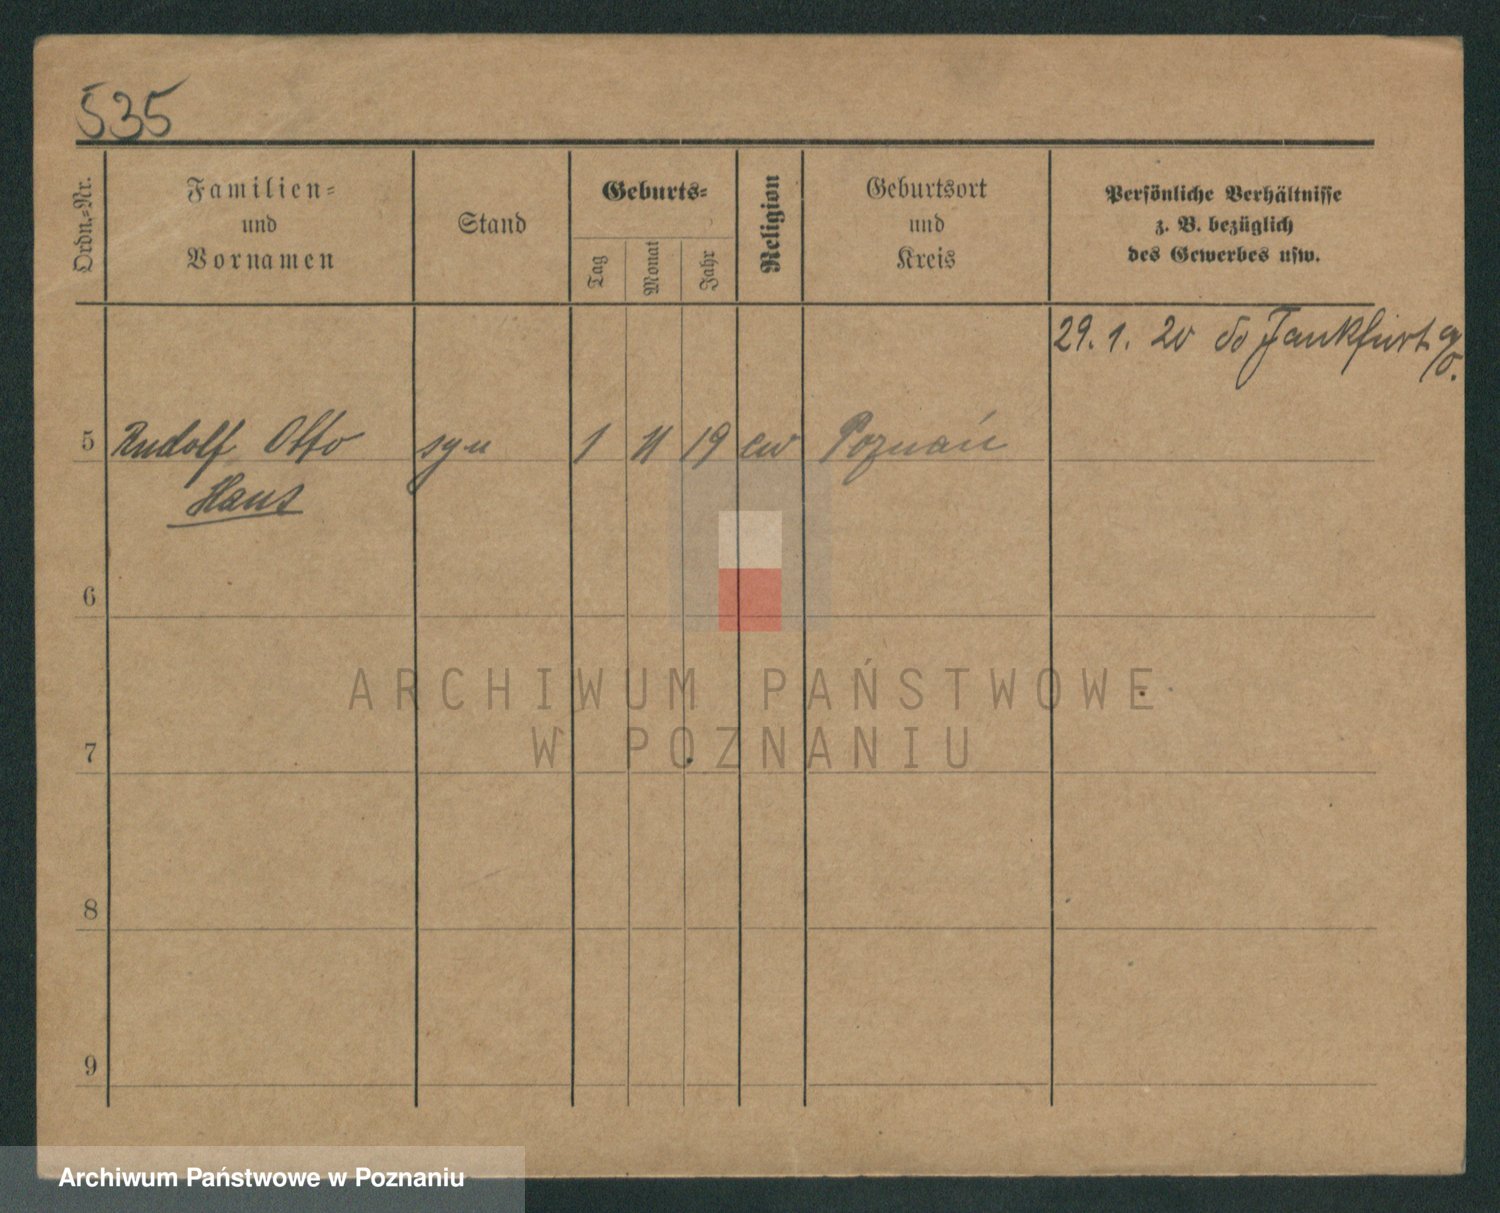 535
Ordn.-Nr.
Familien-
und
Vornamen
Stand
Geburts-
Tag
Monat
Jahr
Religion
Geburtsort
und
Kreis
Persönliche Verhältnisse
z. B. bezüglich
des Gewerbes usw.
29. 1. 20 do Fankfurt a/O.
5 Rudolf Otto syn 1 11 19 ew Poznań
Hans
6
7
8
9
ARCHIWUM PAŃSTWOWE
W POZNANIU
Archiwum Państwowe w Poznaniu